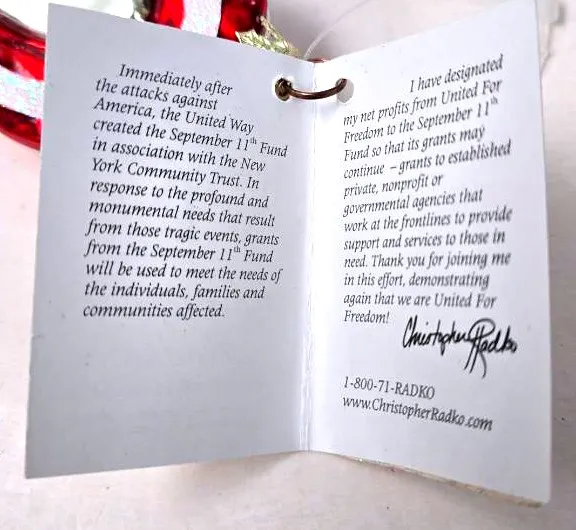 Immediately after
the attacks against
America, the United Way
created the September 11th Fund
in association with the New
York Community Trust. In
response to the profound and
monumental needs that result
from those tragic events, grants
from the September 11th Fund
will be used to meet the needs of
the individuals, families and
communities affected.
I have designated
my net profits from United For
Freedom to the September 11th
Fund so that its grants may
continue – grants to established
private, nonprofit or
governmental agencies that
work at the frontlines to provide
support and services to those in
need. Thank you for joining me
in this effort, demonstrating
again that we are United For
Freedom!
Christopher Radko
1-800-71-RADKO
www.ChristopherRadko.com